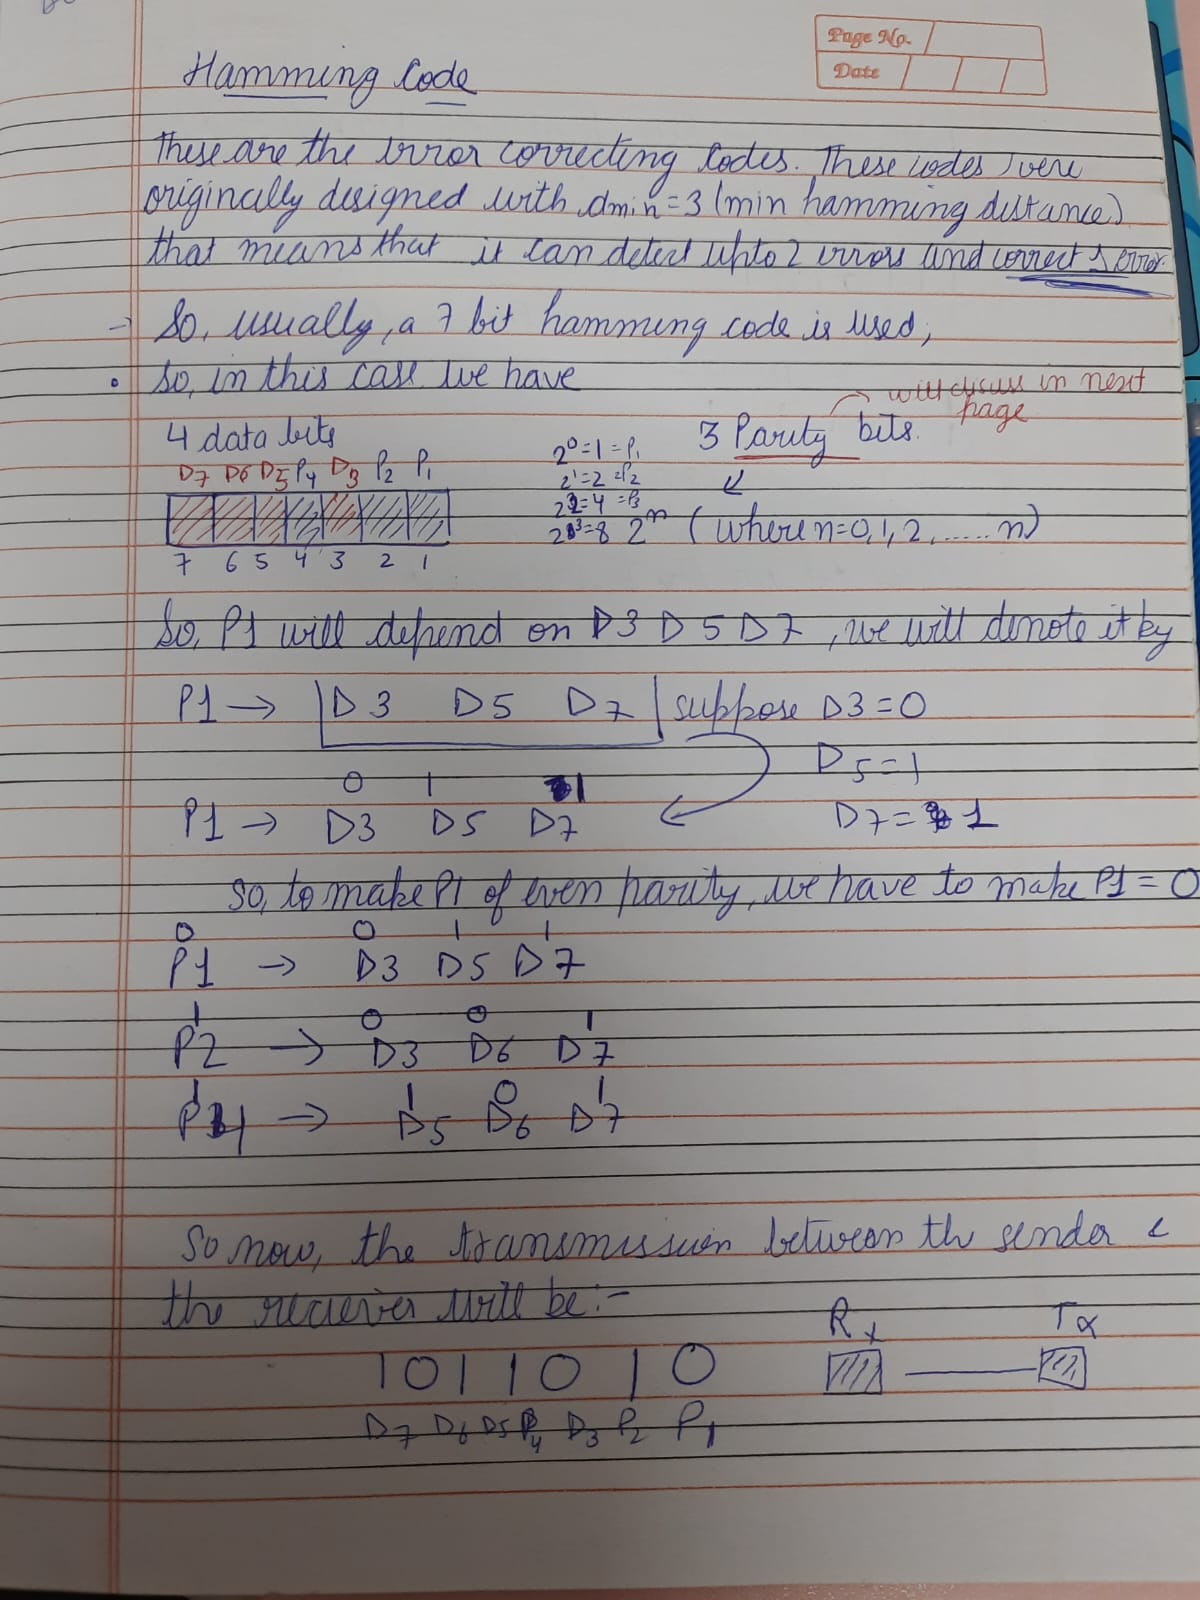 Page No.
Date
Hamming Code
These are the error correcting codes. These codes were
originally designed with dmin=3 (min hamming distance)
that means that it can detect upto 2 errors and correct 1 error.
→ So, usually, a 7 bit hamming code is used,
• So, in this case we have
will discuss in next
page
4 data bits
3 Parity bits.
D7 D6 D5 P4 D3 P2 P1
2⁰=1=P1
2¹=2=P2
2²=4=P3
2³=8 2ⁿ (where n=0,1,2,.....n)
7 6 5 4 3 2 1
So, P1 will depend on D3 D5 D7, we will denote it by
P1 → D3 D5 D7 suppose D3=0
D5=1
0 1 1
P1 → D3 D5 D7
D7=1
So, to make P1 of even parity, we have to make P1=0
0 0 1 1
P1 → D3 D5 D7
1 0 0 1
P2 → D3 D6 D7
1 1 0 1
P4 → D5 D6 D7
So now, the transmission between the sender &
the reciever will be:-
Rx Tx
1 0 1 1 0 1 0
D7 D6 D5 P4 D3 P2 P1